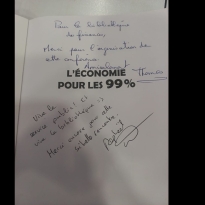 Pour la bibliothèque
de
Merci pour l'organisation de
cette conférence
Amicalement
Thomas
L'ÉCONOMIE
POUR LES 99%
Vive le
service public ! Et
vive la bibliothèque !
Merci encore pour cette
belle rencontre.